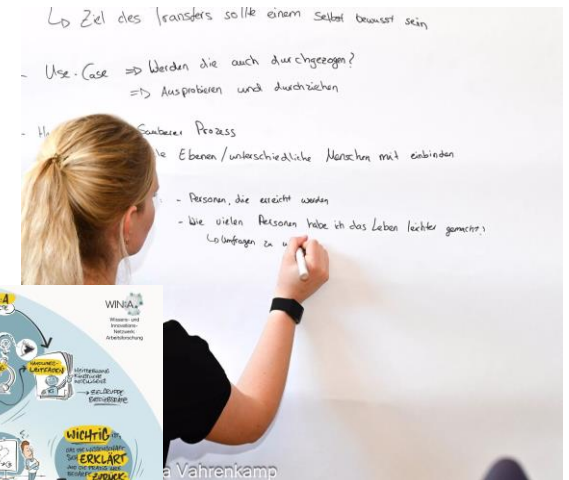 ↳ Ziel des Transfers sollte einem selbst bewusst sein
- Use-Case => Werden die auch durchgezogen?
=> Ausprobieren und durchziehen
Sauberer Prozess
Ebenen/unterschiedliche Menschen mit einbinden
- Personen, die erreicht werden
- Wie vielen Personen habe ich das Leben leichter gemacht?
↳ Umfragen zu
WIN:A
Wissens- und
Innovations-
Netzwerk
Arbeitsforschung
LEITFADEN
WICHTIG
ERKLÄRT
ZURÜCK
Vahrenkamp